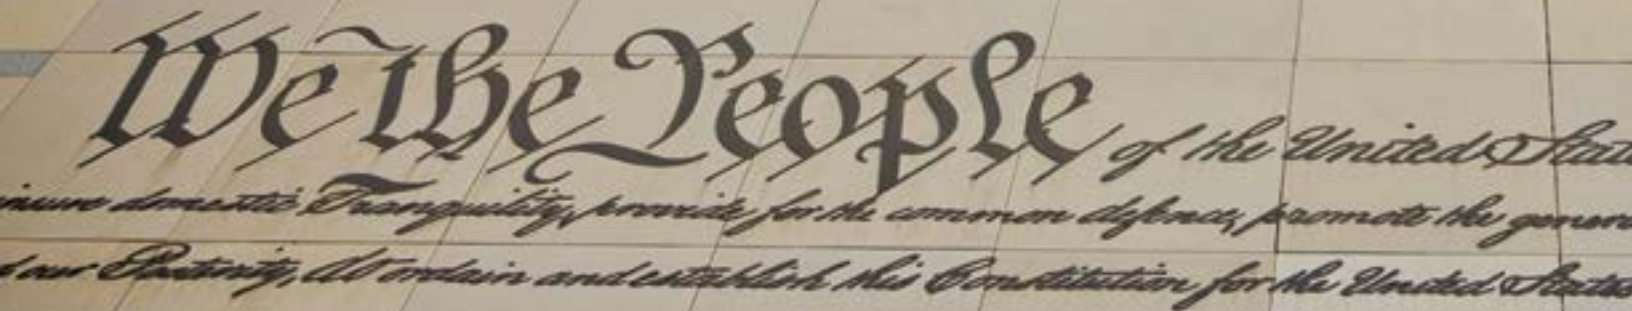 We the People of the United States
insure domestic Tranquility, provide for the common defence, promote the general
our Posterity, do ordain and establish this Constitution for the United States